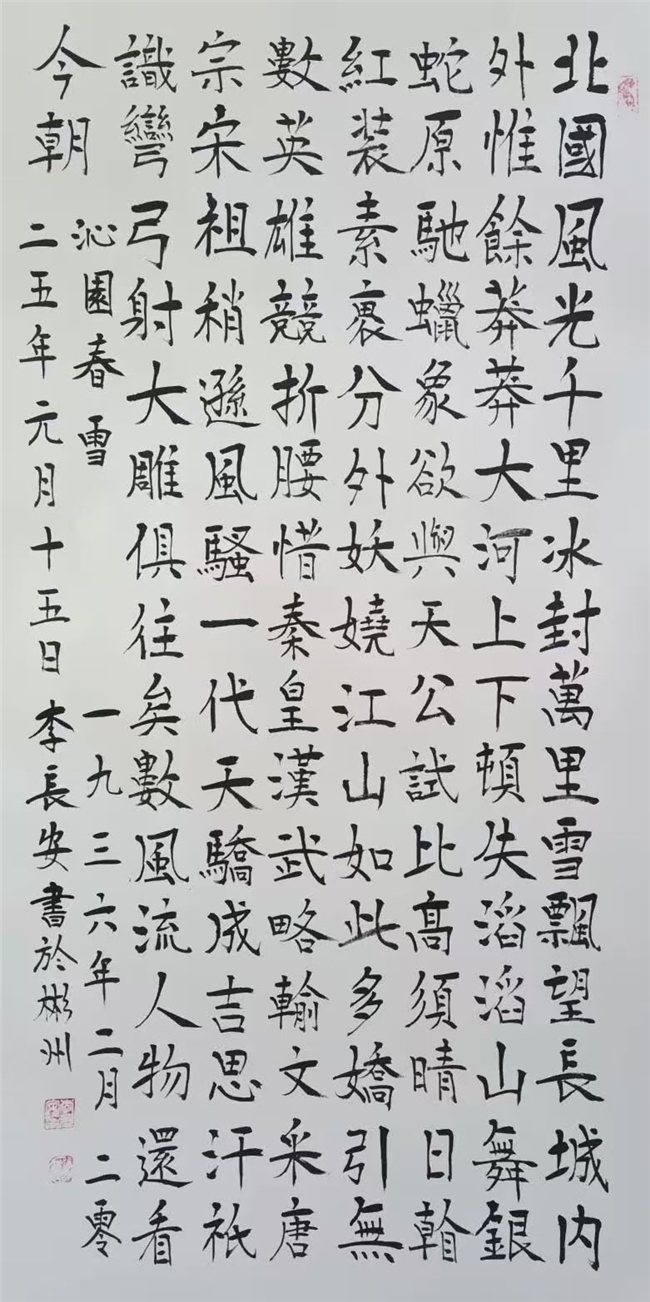 北國風光千里冰封萬里雪飄望長城內
外惟餘莽莽大河上下頓失滔滔山舞銀
蛇原馳蠟象欲與天公試比高須晴日
紅裝素裹分外妖嬈江山如此多嬌引無
數英雄競折腰惜秦皇漢武略輸文采唐
宗宋祖稍遜風騷一代天驕成吉思汗祇
識彎弓射大雕俱往矣數風流人物還看
今朝
沁園春雪 一九三六年二月 二零
二五年元月十五日 李長安書於彬州